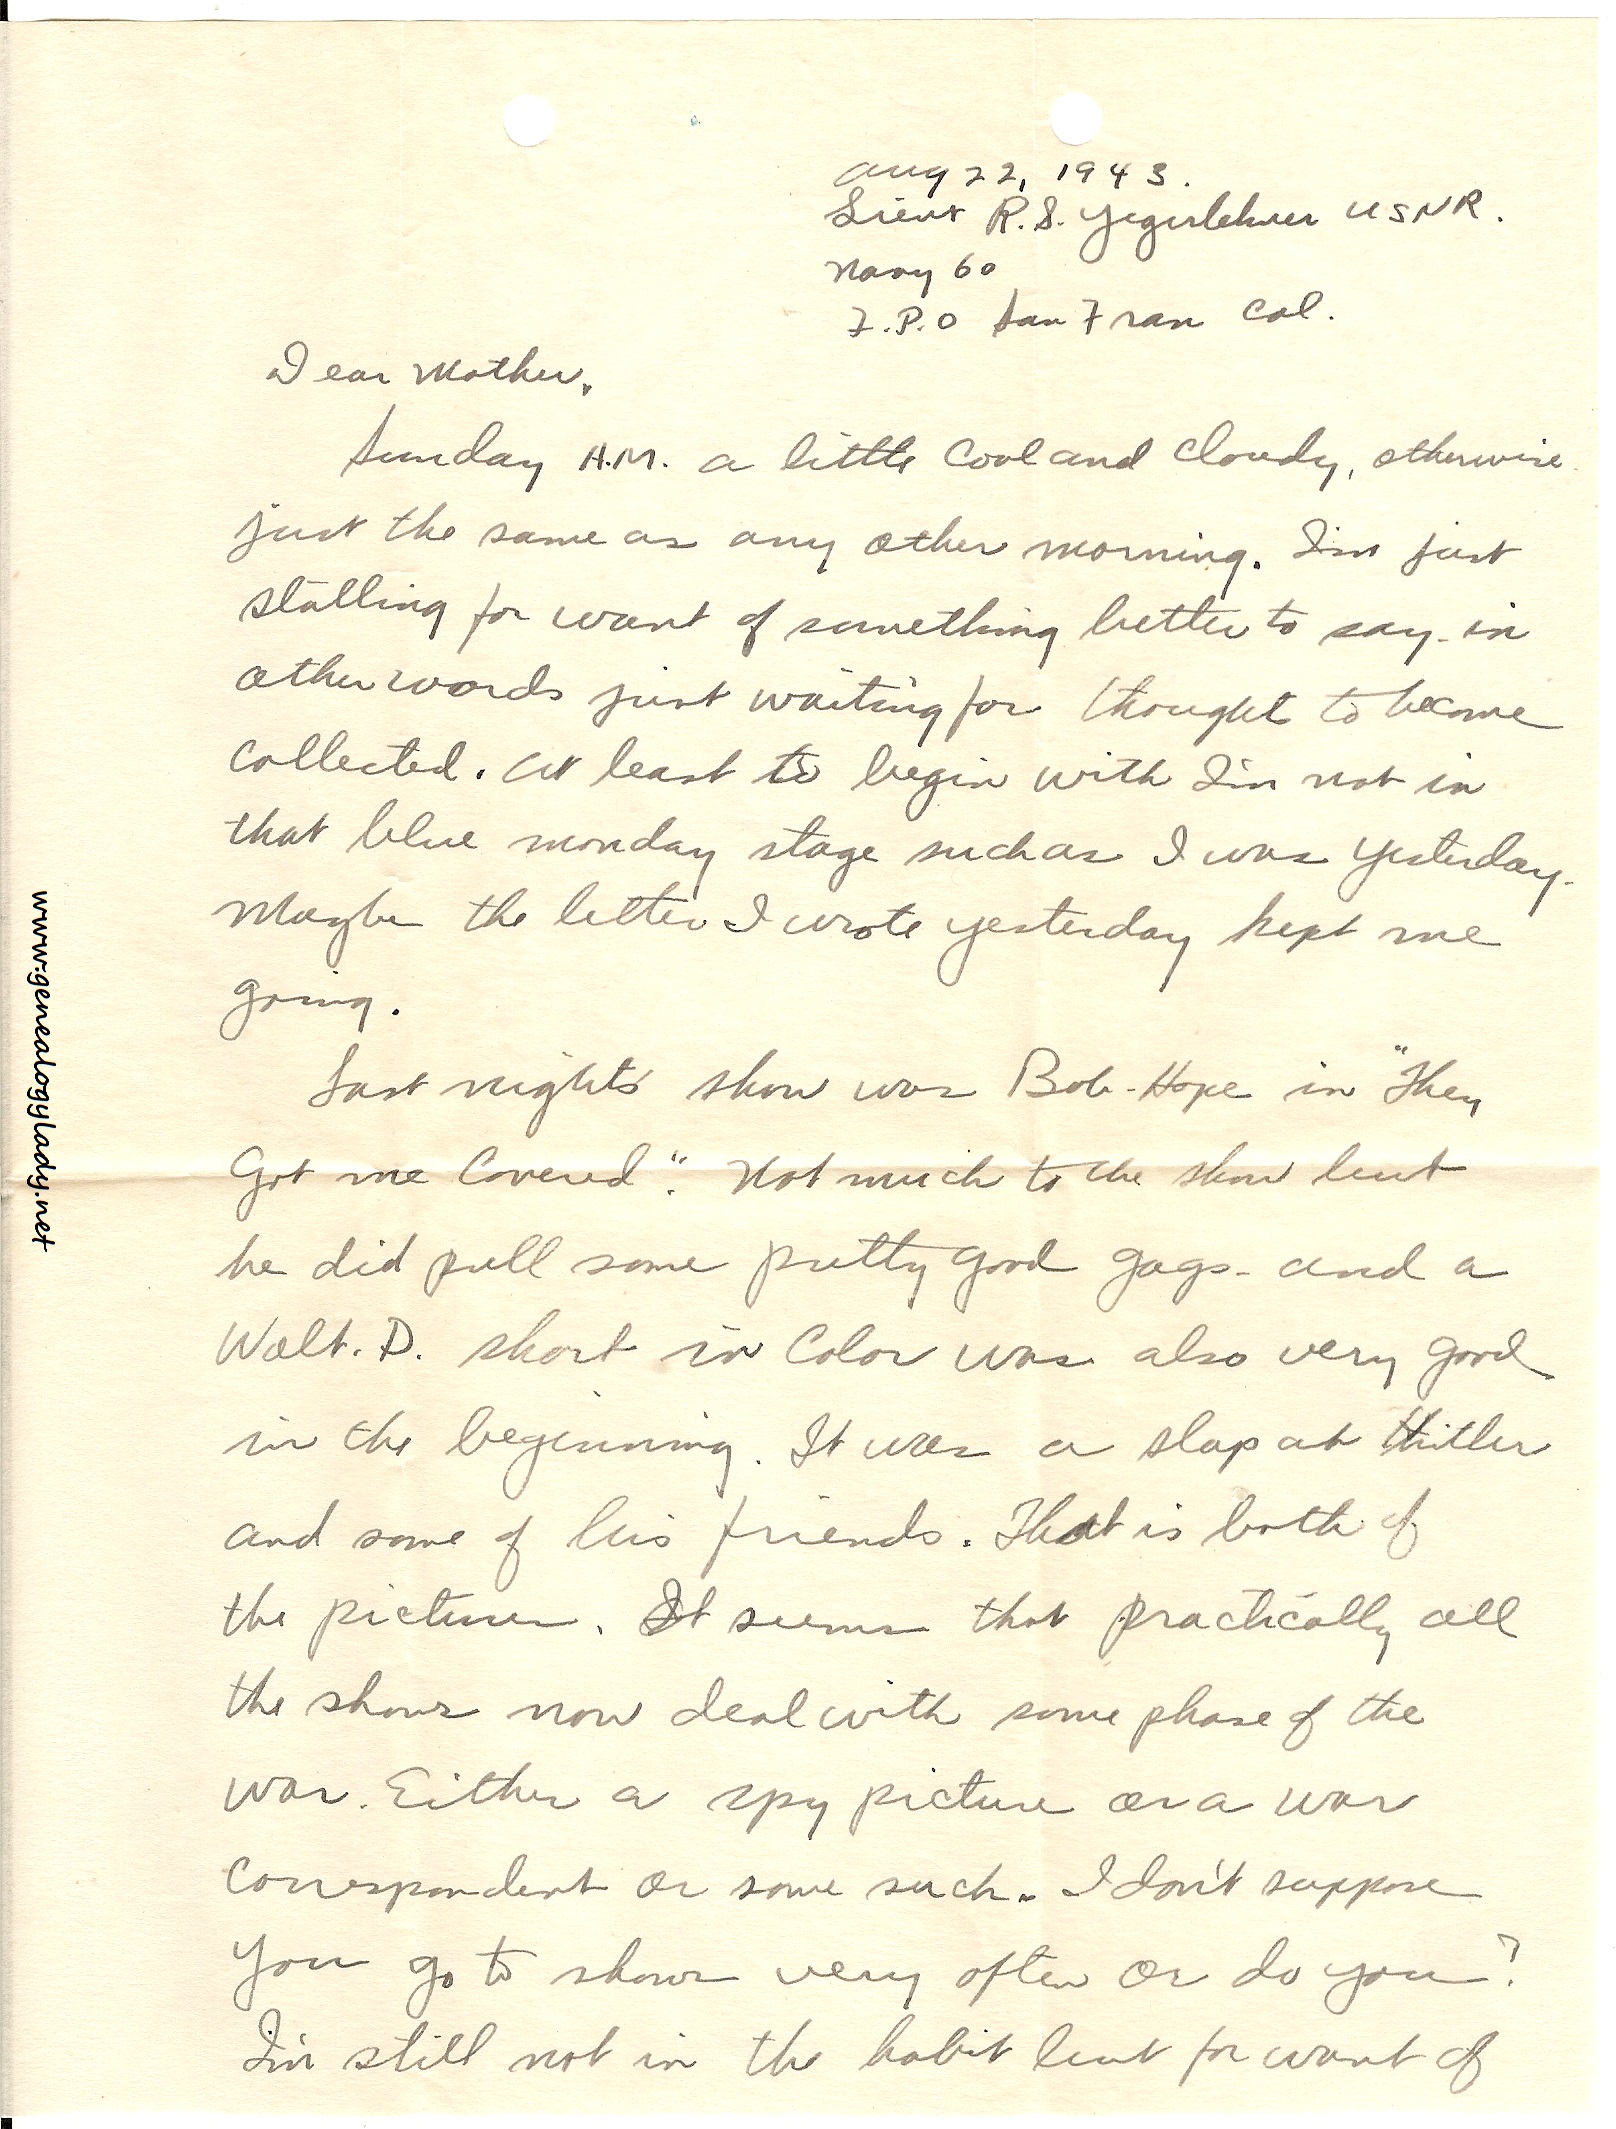 Aug 22, 1943.
Lieut R.S. Yegerlehner USNR.
Navy 60
F.P.O San Fran Cal.
Dear Mother,
Sunday A.M. a little cool and cloudy, otherwise
just the same as any other morning. I'm just
stalling for want of something better to say - in
other words just waiting for thought to become
collected. At least to begin with I'm not in
that blue monday stage such as I was yesterday.
Maybe the letter I wrote yesterday kept me
going.
Last nights' show was Bob-Hope in "They
Got me Covered". Not much to the show but
he did pull some pretty good gags - and a
Walt. D. short in color was also very good
in the beginning. It was a slap at Hitler
and some of his friends. That is both of
the pictures. It seems that practically all
the shows now deal with some phase of the
war. Either a spy picture or a war
correspondent or some such. I don't suppose
you go to shows very often or do you?
I'm still not in the habit but for want of
www.genealogylady.net